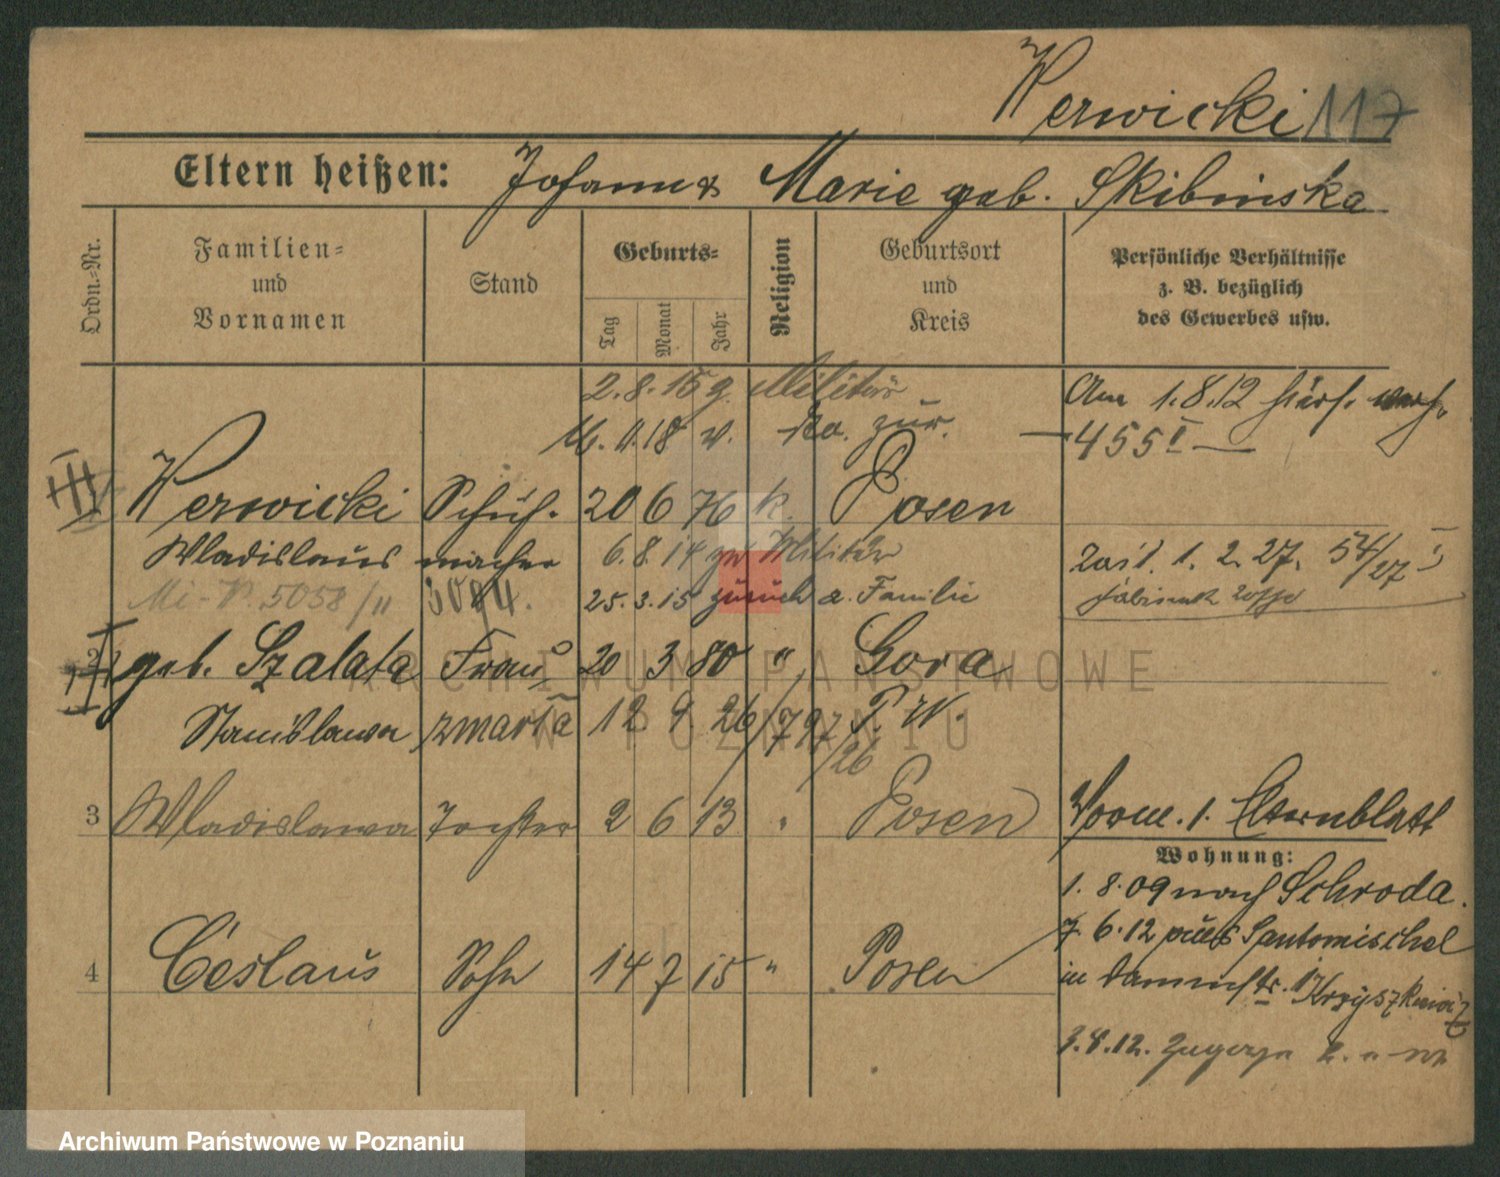 Kerwicki 117
Eltern heißen: Johann & Marie geb. Skibinska
Ordn.-Nr.
Familien-
und
Vornamen
Stand
Geburts-
Tag
Monat
Jahr
Religion
Geburtsort
und
Kreis
Persönliche Verhältnisse
z. B. bezüglich
des Gewerbes usw.
2. 8. 15 z. Militär
11. 18 v. zur.
Am 1. 8. 12
455 I
III
Kerwicki Schuh- 20 6 76 k. Posen
Wladislaus macher 6. 8. 14 zu Militär
1. 2. 27. 54/27 I
5058/II 25. 3. 15 zurück z. Familie
2 geb. Szalata Frau 20 3 80 " Gora
Stanislawa zmarła 12 9 26/797/26 P. W.
3 Wladislawa Tochter 2 6 13 " Posen
Vorm. 1. Elternblatt
Wohnung:
1. 8. 09 nach Schroda.
7. 6. 12 Santomischel
4 Ceslaus Sohn 14 7 15 " Posen
in
3. 8. 12.
ARCHIWUM PAŃSTWOWE
W POZNANIU
Archiwum Państwowe w Poznaniu